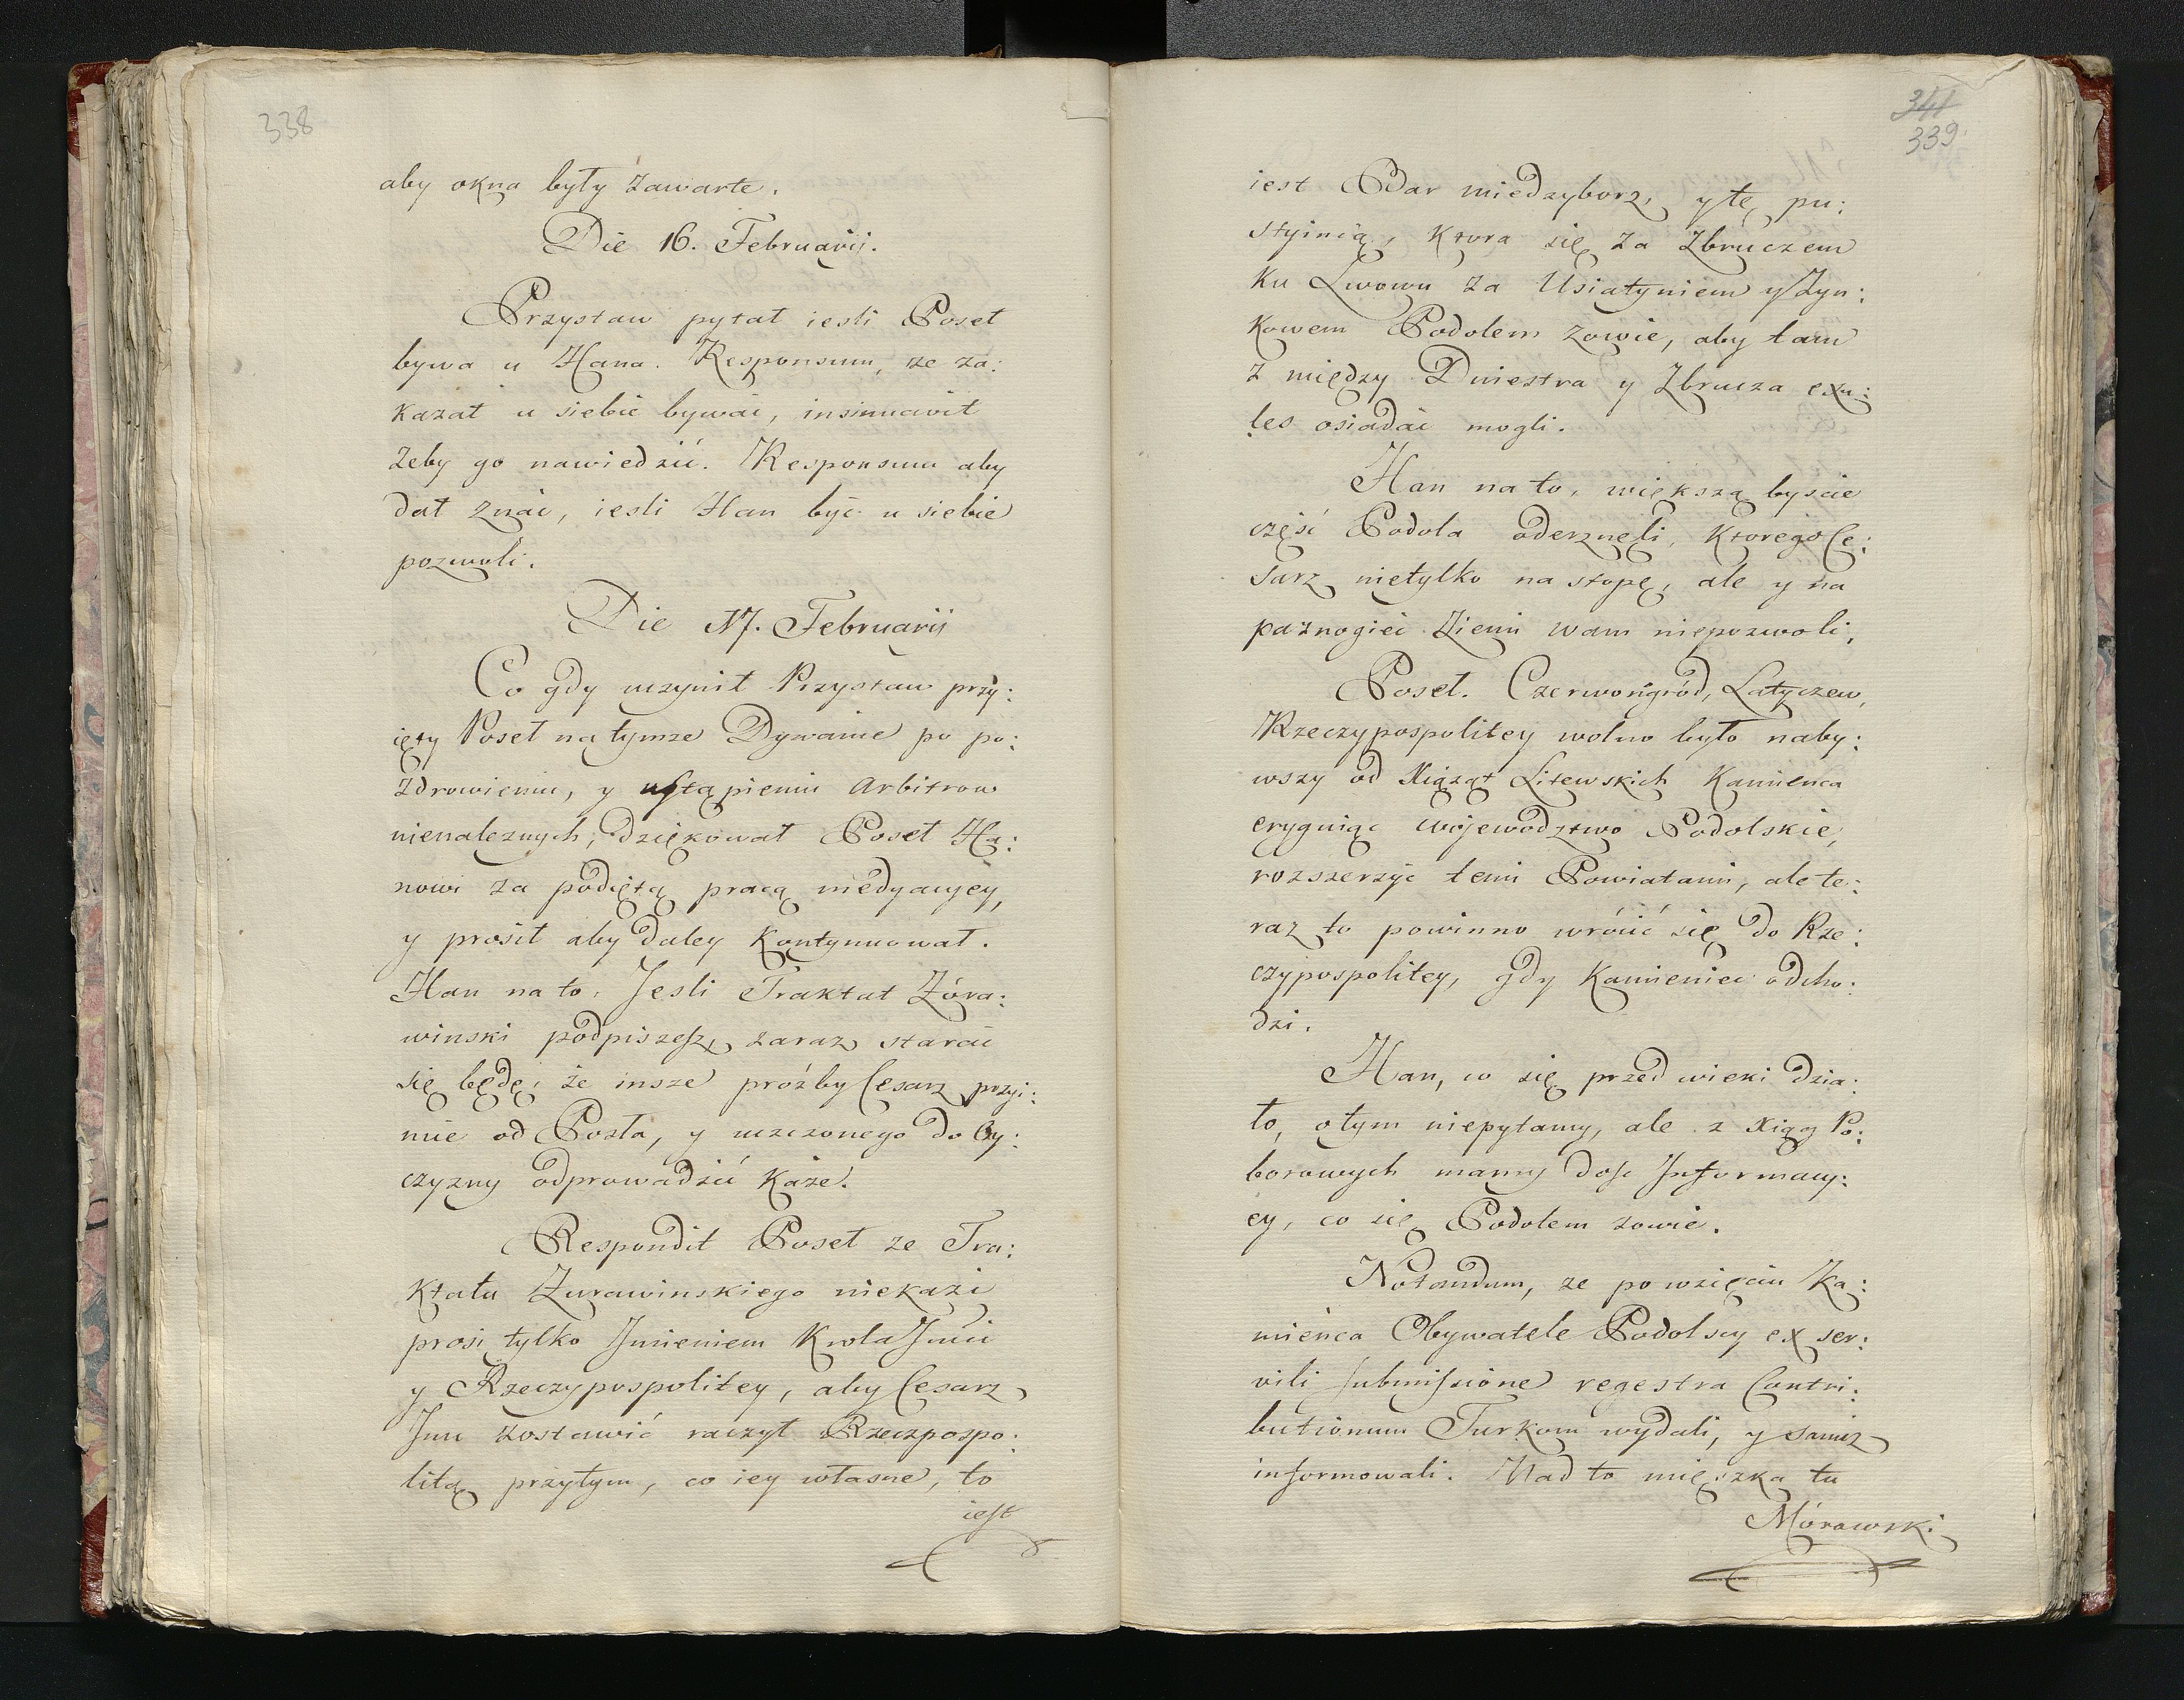 338
aby okna były zawarte.
Die 16. Februarij.
Przystaw pytał iesli Poseł
bywa u Hana. Responsum, ze za:
kazał u siebie bywać, insinuavit
żeby go nawiedzić. Responsum aby
dał znać, iesli Han być u siebie
pozwoli.
Die 17. Februarij
Co gdy uczynił Przystaw przy:
ięty Poseł na tymze Dywanie po po:
zdrowieniu, y ustąpieniu Arbitrow
nienaleznych, dziękował Poseł Ha:
nowi za podiętą pracą medyacyey,
y prosił aby daley kontynuował.
Han na to, Jesli Traktat Żóra:
winski podpiszesz, zaraz starać
się będę, że insze próźby Cesarz przyi:
mie od Posła, y uczczonego do Oy:
czyzny odprowadzić każe.
Respondit Poseł ze Tra:
ktatu Żurawinskiego niekazi
prosi tylko Jmieniem Krola Jmci
y Rzeczypospolitey, aby Cesarz
Jmc zostawić raczył Rzeczpospo:
litą przytym, co iey własne, to
iest
341
339
iest Bar miedzyborz, y tę pu:
styinią, ktora się za Zbruczem
ku Lwowu za Usiatyniem y Zyn:
kowem Podolem zowie, aby tam
z między Dniestra y Zbrucza exu:
les osiadać mogli.
Han na to, większą byscie
część Podola oderznęli, ktorego Ce:
sarz nietylko na stopę, ale y na
paznogieć Ziemi wam niepozwoli,
Poseł. Czerwongród, Latyczew,
Rzeczypospolitey wolno było naby:
wszy od Xiążąt Litewskich Kamienca
eryguiąc wojewodztwo Podolskie,
rozszerzyć temi Powiatami, ale te:
raz to powinno wrócić się do Rze:
czypospolitey, gdy Kamieniec odcho:
dzi.
Han, co się przed wieki dzia:
ło, o tym niepytamy, ale z Xiąg Po:
borowych mamy dosc Jnformacy:
ey, co się Podolem zowie.
Notandum, ze po wzięciu Ka:
mienca Obywatele Podolscy ex ser:
vili submissione regestra Contri:
butionum Turkom wydali, y samiz
informowali. Nad to mięszka tu
Mórawski